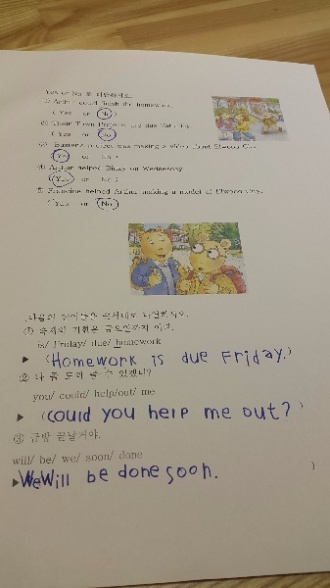 Yes or No 로
(1) Arthur could finish the homework.
( Yes or No )
( Yes or No )
was making a video about Elwood City.
( Yes or No )
(4) Arthur helped on Wednesday.
( Yes or No )
(5) Francine helped Arthur making a model of Elwood City.
( Yes or No )
(1) 숙제의 기한은 금요일까지 이다.
is/ Friday/ due/ homework
▶ (Homework is due Friday.)
② 나 좀 도와 줄 수 있겠니?
you/ could/ help/out/ me
▶ (could you help me out?)
③ 금방 끝날거야.
will/ be/ we/ soon/ done
▶ We Will be done soon. )